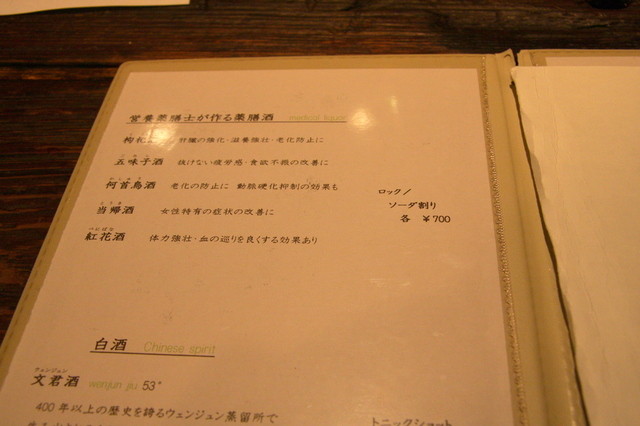 営養薬膳士が作る薬膳酒 medical liquor
枸杞 肝臓の強化・滋養強壮・老化防止に
五味子酒 抜けない疲労感・食欲不振の改善に
かしゅう
何首烏酒 老化の防止に 動脈硬化抑制の効果も
とうき
当帰酒 女性特有の症状の改善に
べにばな
紅花酒 体力強壮・血の巡りを良くする効果あり
ロック/
ソーダ割り
各 ¥700
白酒 Chinese spirit
ウェンジュン
文君酒 wenjun jiu 53°
400年以上の歴史を誇るウェンジュン蒸留所で
トニックショット